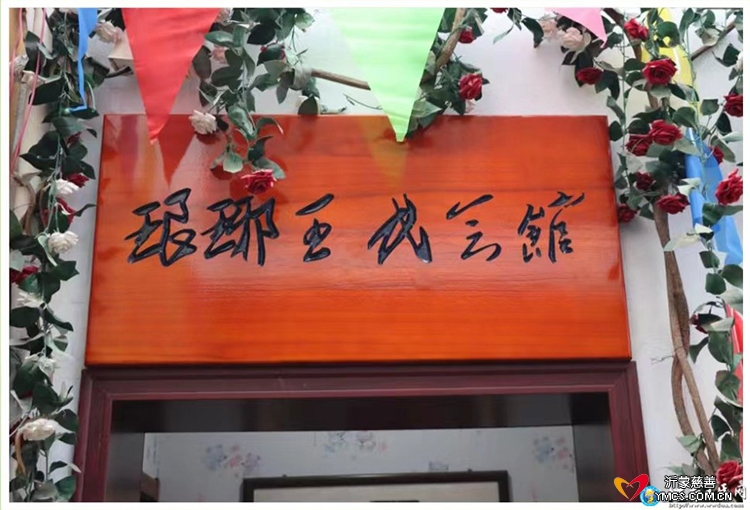 琅琊王氏会館
沂蒙慈善
YMCS.COM.CN